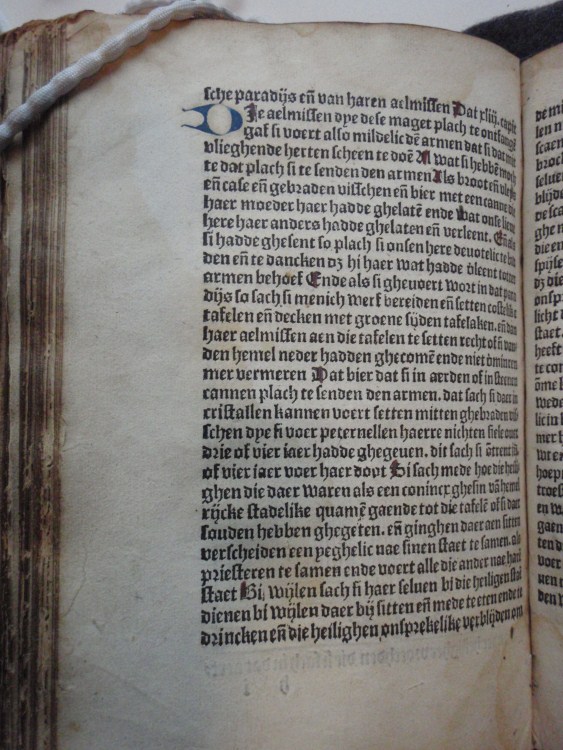 sche paradijs en̄ van haren aelmissen Dat xliij. capit
DJe aelmissen dye dese maget plach te ontfangē
gaf si voert also mildelic dē armen dat si dat mit
vlieghende herten scheen te doē Al wat si hebbē moch
te dat plach si te senden den armen Als broot en̄ vleys
en̄ case en̄ gebraden visschen en̄ bier met een canne die
haer moeder haer hadde ghelatē ende wat onse lieue
here haer anders hadde ghelaten en̄ verleent. En̄ als
si hadde ghesent so plach si onsen here deuotelic te bid
den en̄ te dancken dz hi haer wat hadde v̄leent totter
armen behoef Ende als si gheuoert wort in dat para
dijs so sach si menich werf bereiden en̄ setten costelike
tafelen en̄ decken met groene sijden tafelaken. en̄ daer
haer aelmissen aen die tafelen te setten recht of si van
den hemel neder hadden ghecomē ende niet
mer vermeren Dat bier dat si in aerden of in steenen
cannen plach te senden den armen. dat sach si daer in
cristallen kannen voert setten mitten ghebraden vis
schen dye si voer peternellen haerre nichten siele ouer
drie of vier iaer hadde ghegeuen. dit sach si omtrent iij
of vier iaer voer haer doot Si sach mede hoe die heili
ghen die daer waren als een conincx ghesin vā hemel
rijcke stadelike quamē gaende tot die tafelē of si daer
souden hebben ghegeten. en̄ ginghen daer aen sitten
verscheiden een yeghelic nae sinen staet te samen. als
priesteren te samen ende voert alle die ander nae haren
staet Bi wijlen sach si haer seluen bi die heiligen staen
dienen bi wijlen daer bij sitten en̄ mede te eten ende te
drincken en̄ die heilighen onsprekelike verblijden om